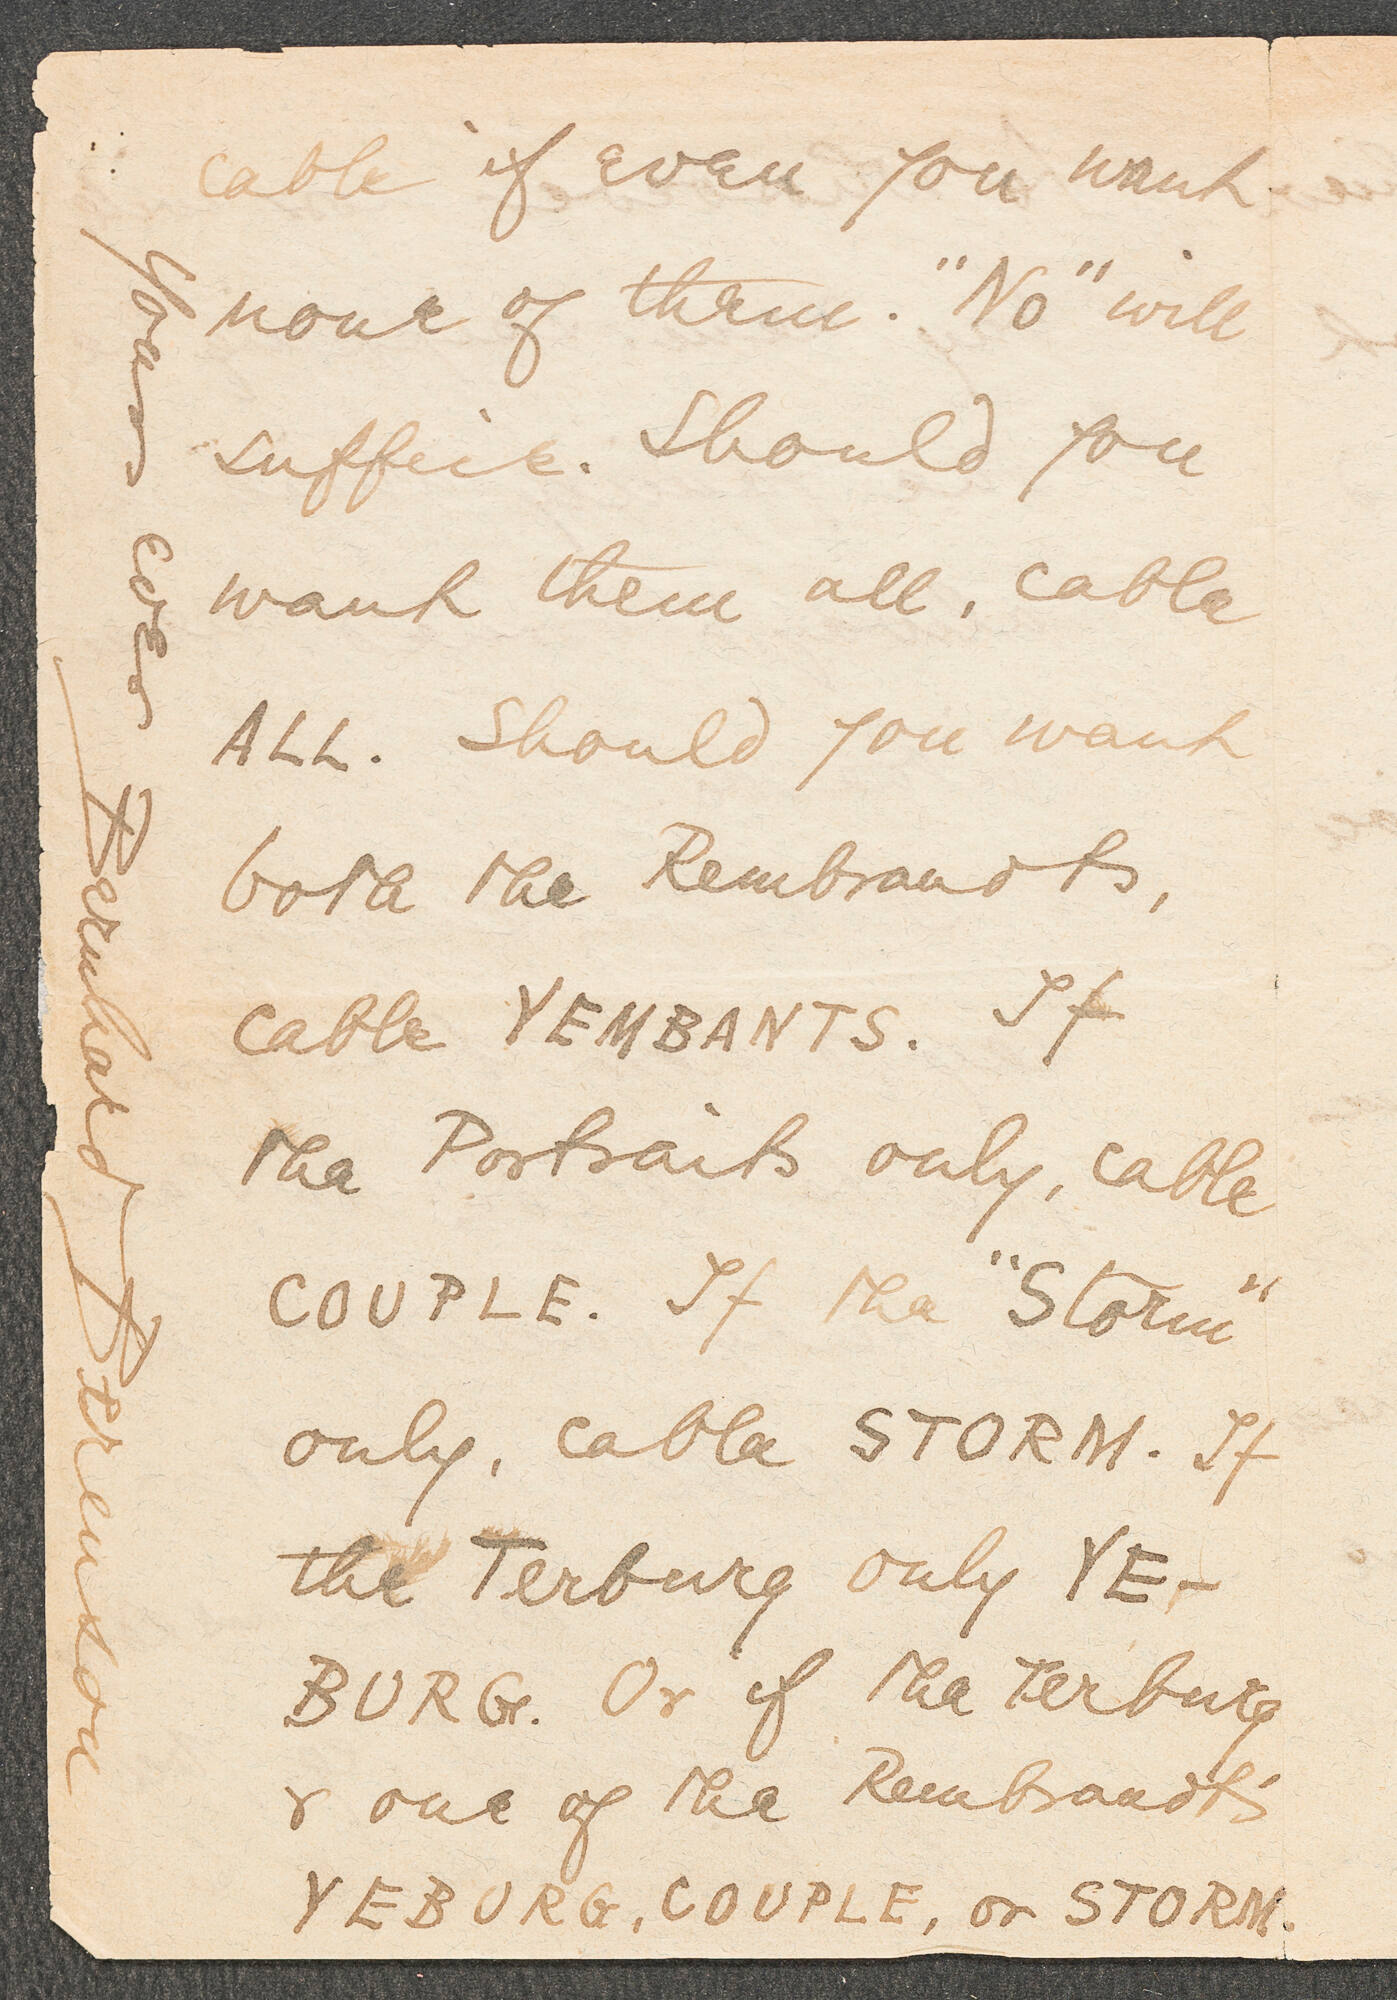 cable if even you want
none of them. "No" will
suffice. Should you
want them all, cable
ALL. Should you want
both the Rembrandts,
cable YEMBANTS. If
the Portraits only, cable
COUPLE. If the "Storm"
only, cable STORM. If
the Terburg only YE-
BURG. Or if the Terburg
& one of the Rembrandts
YEBURG, COUPLE, or STORM.
Yours ever Bernhard Berenson